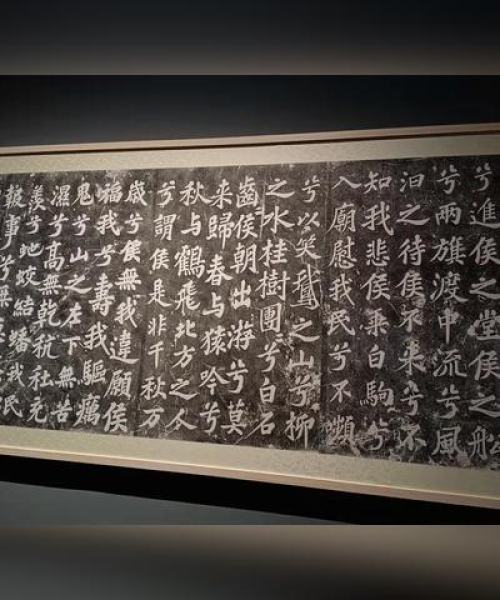 兮進侯之堂侯之船
兮兩旗渡中流兮風
汩之待侯不来兮不
知我悲侯乘白駒兮
入廟慰我民兮不嚬
兮以笑鵞之山兮柳
之水桂樹團〻兮白石
齒〻侯朝出游兮莫
来歸春与猿吟兮
秋与鶴飛北方之人
兮謂侯是非千秋万
歲兮侯無我違願侯
福我兮壽我驅癘
鬼兮山之左下無苦
濕兮高無乾秔秫充
羨兮虵蛟結蟠我民
報事兮無